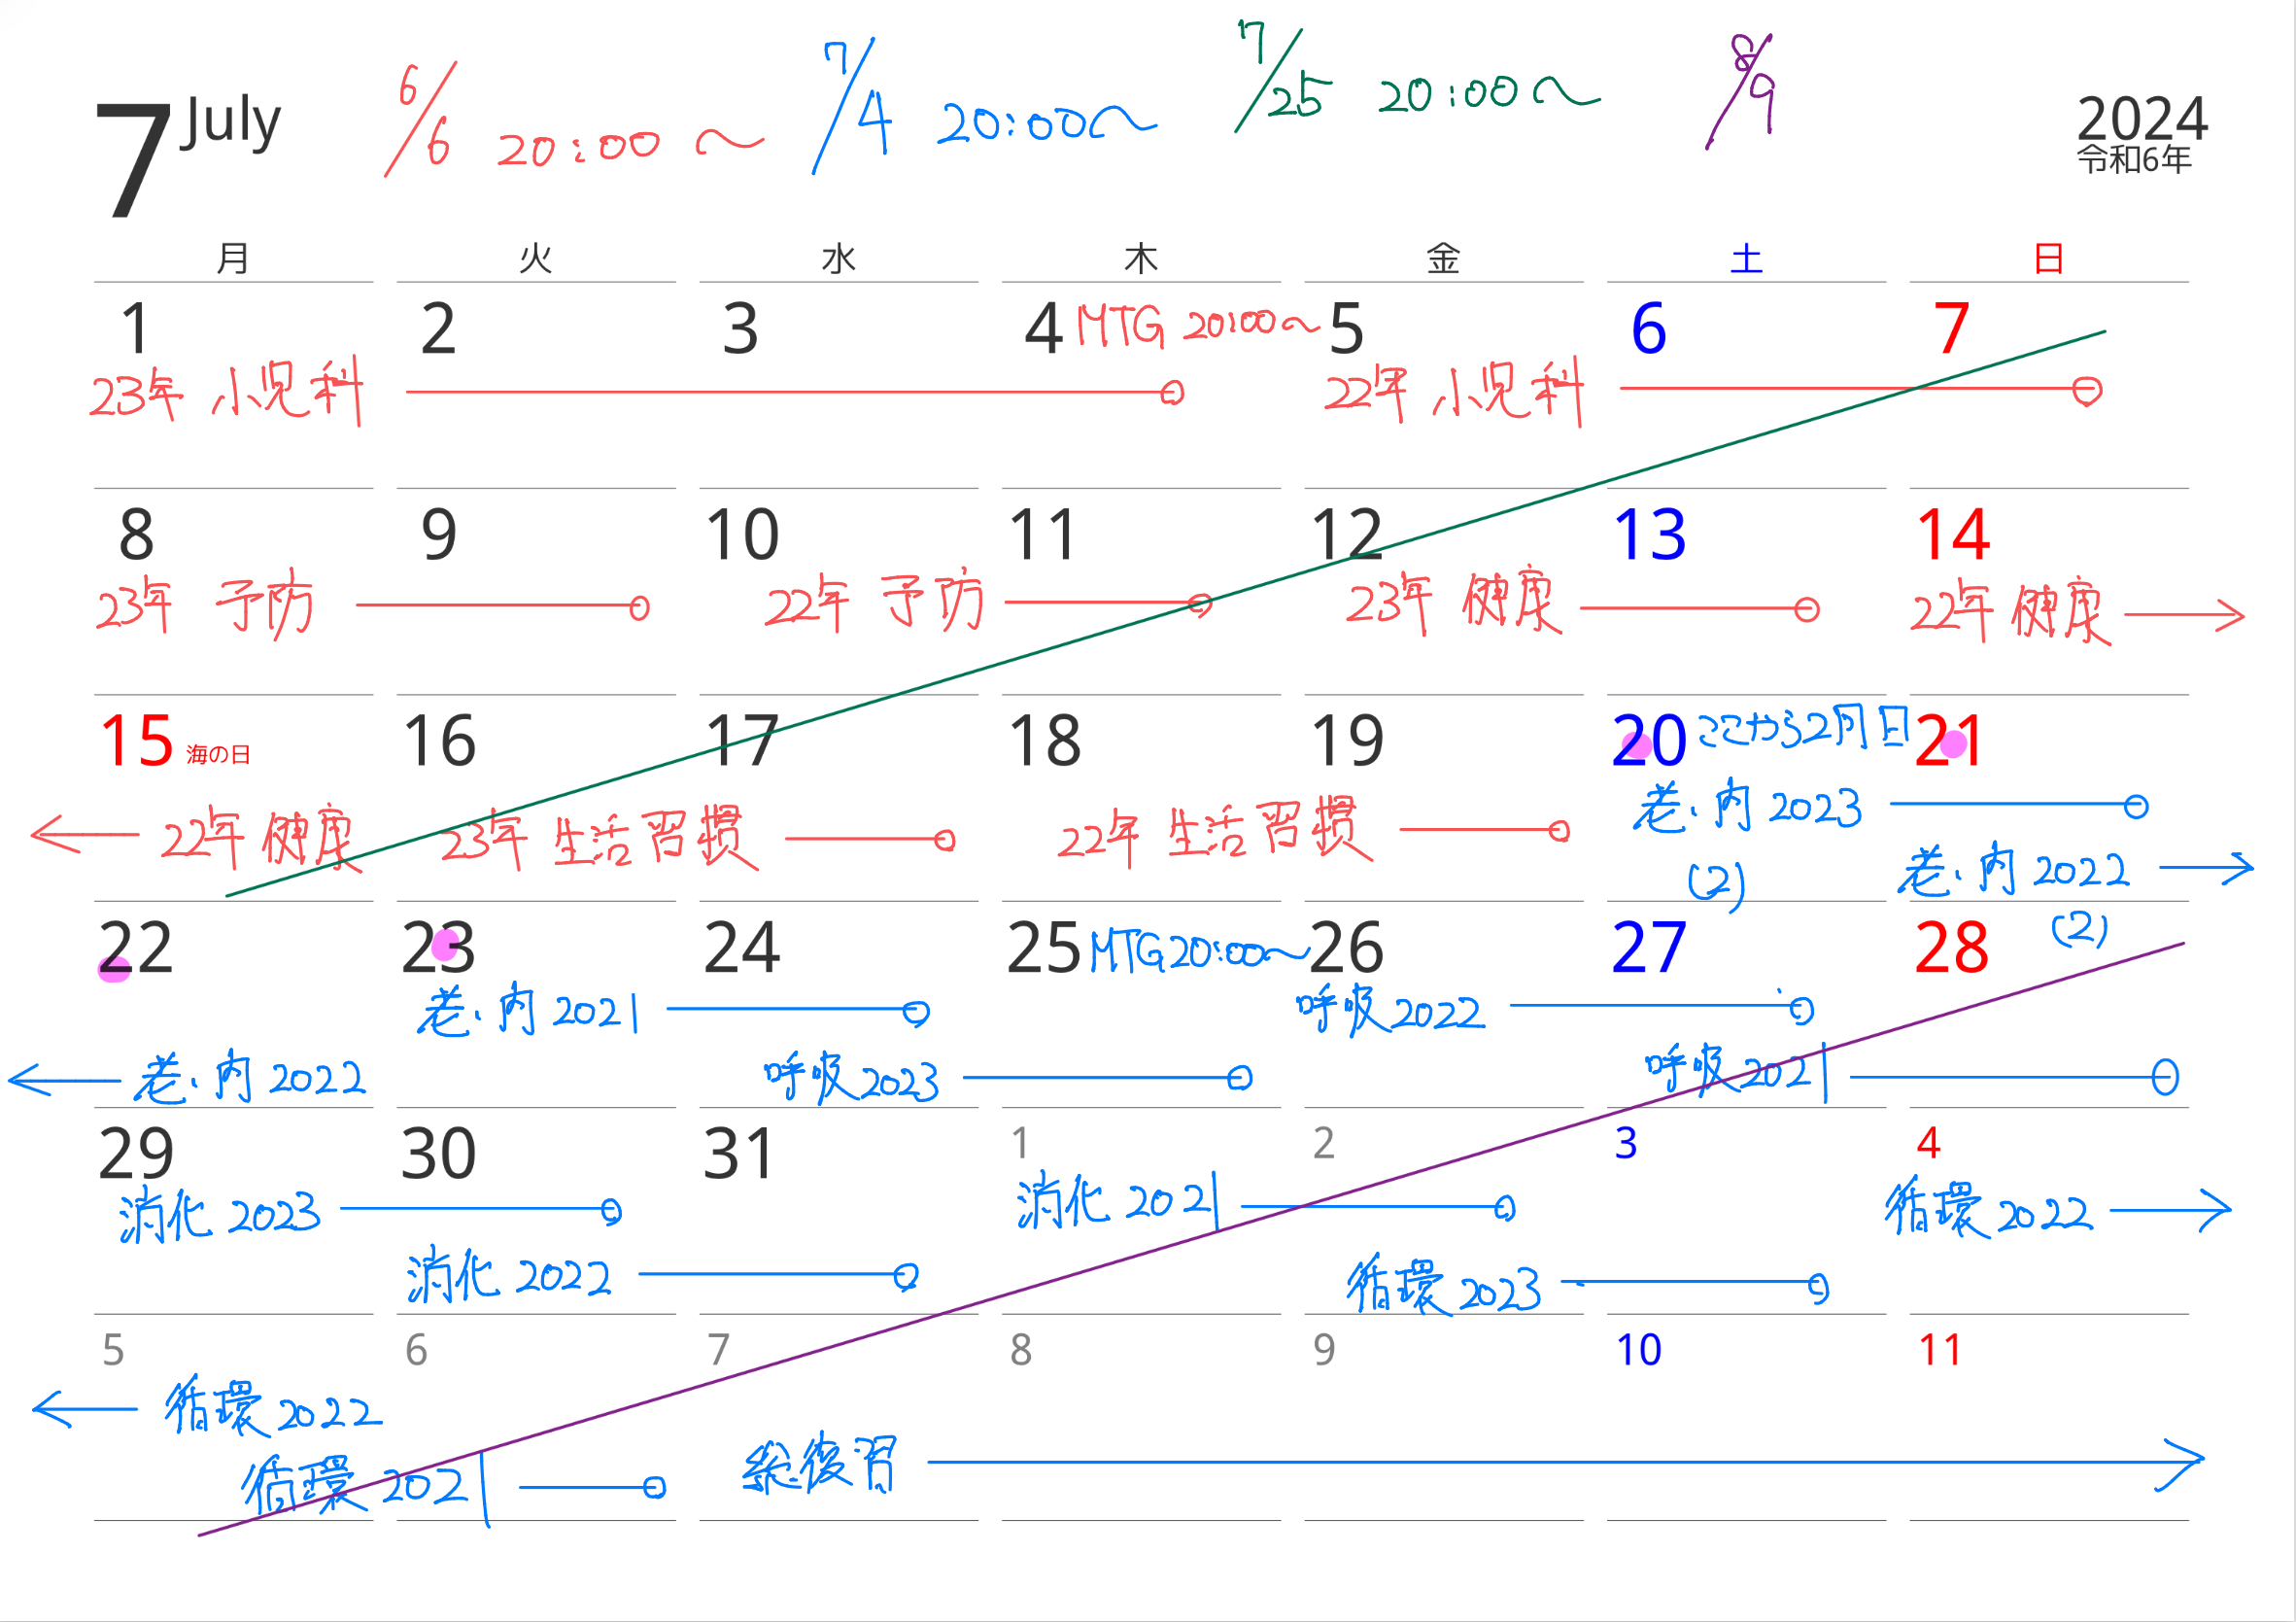 7 July 6/6 20:00〜 7/4 20:00〜 7/25 20:00〜 8/9 2024
令和6年
月 火 水 木 金 土 日
1 2 3 4 MTG 20:00〜 5 6 7
23年 小児科 22年 小児科
8 9 10 11 12 13 14
23年 予防 22年 予防 23年 健康 22年 健康
15 海の日 16 17 18 19 20 ここから2周目 21
22年 健康 23年 生活習慣 22年 生活習慣 老・内 2023
(2) 老・内 2022
(2)
22 23 24 25 MTG 20:00〜 26 27 28
老・内 2021 呼吸 2022
老・内 2022 呼吸 2023 呼吸 2021
29 30 31 1 2 3 4
消化 2023 消化 2021 循環 2022
消化 2022 循環 2023
5 6 7 8 9 10 11
循環 2022
循環 2021 総復習